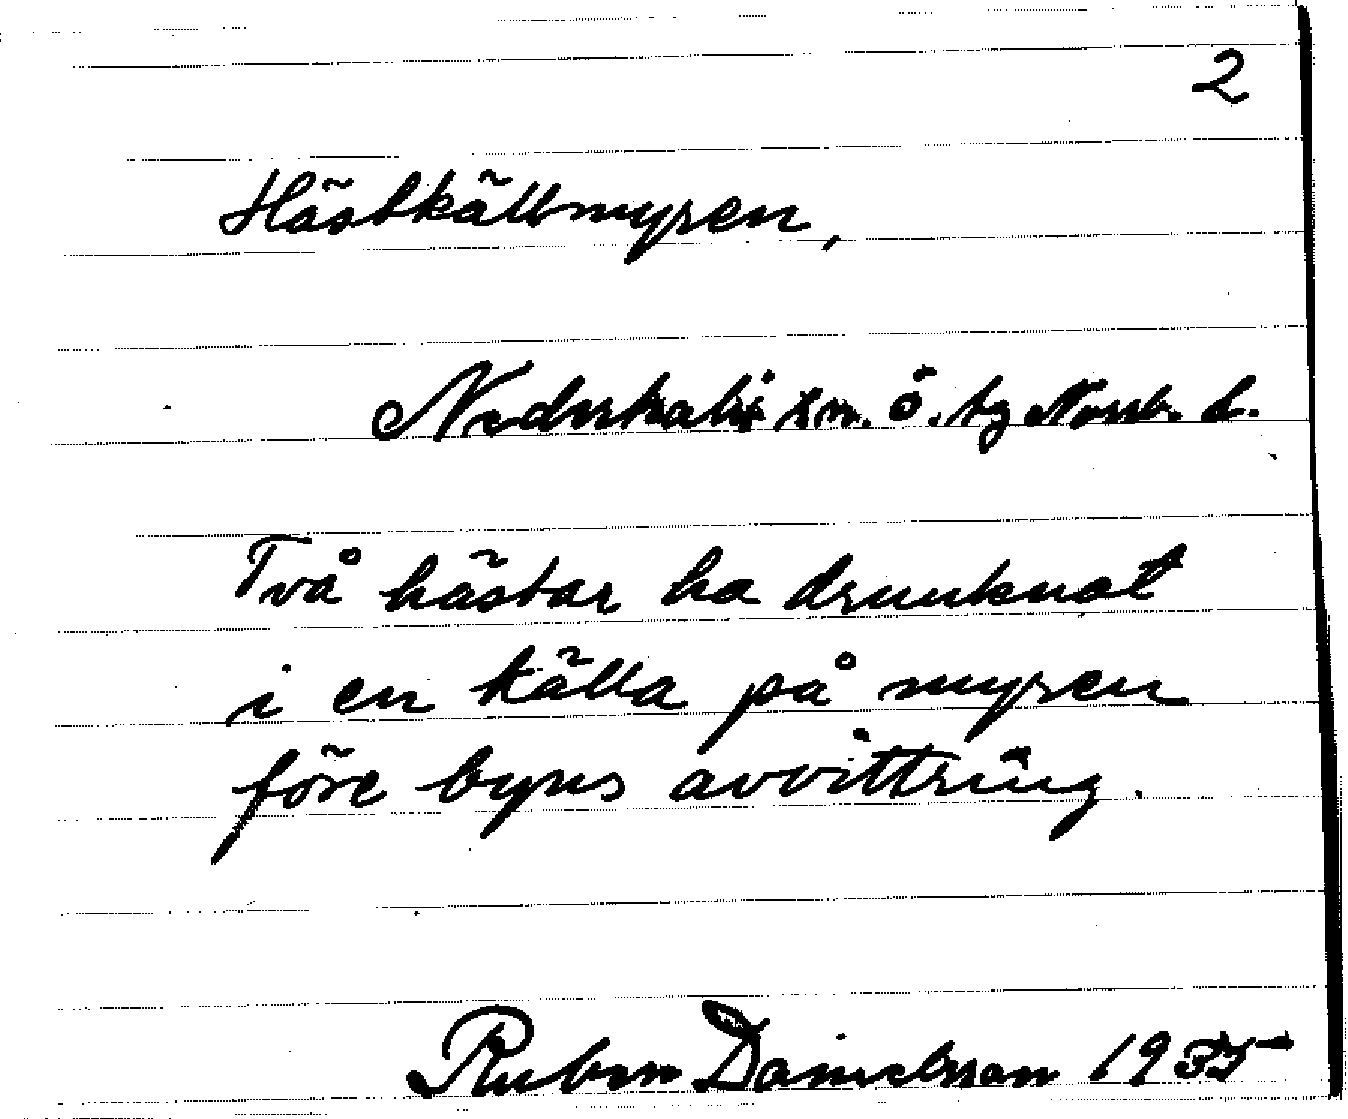 2
Hästkällmyren,
Nederkalix sn. ö. by Norrb. l.
Två hästar ha drunknat
i en källa på myren
före byns avvittring.
Ruben Danielsson 1935